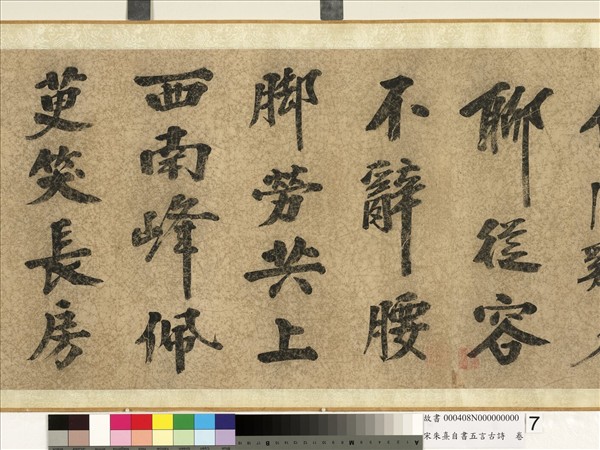 聊從容
不辭腰
脚勞共上
西南峰佩
萸笑長房
故書 000408N000000000
宋朱熹自書五言古詩 卷
7